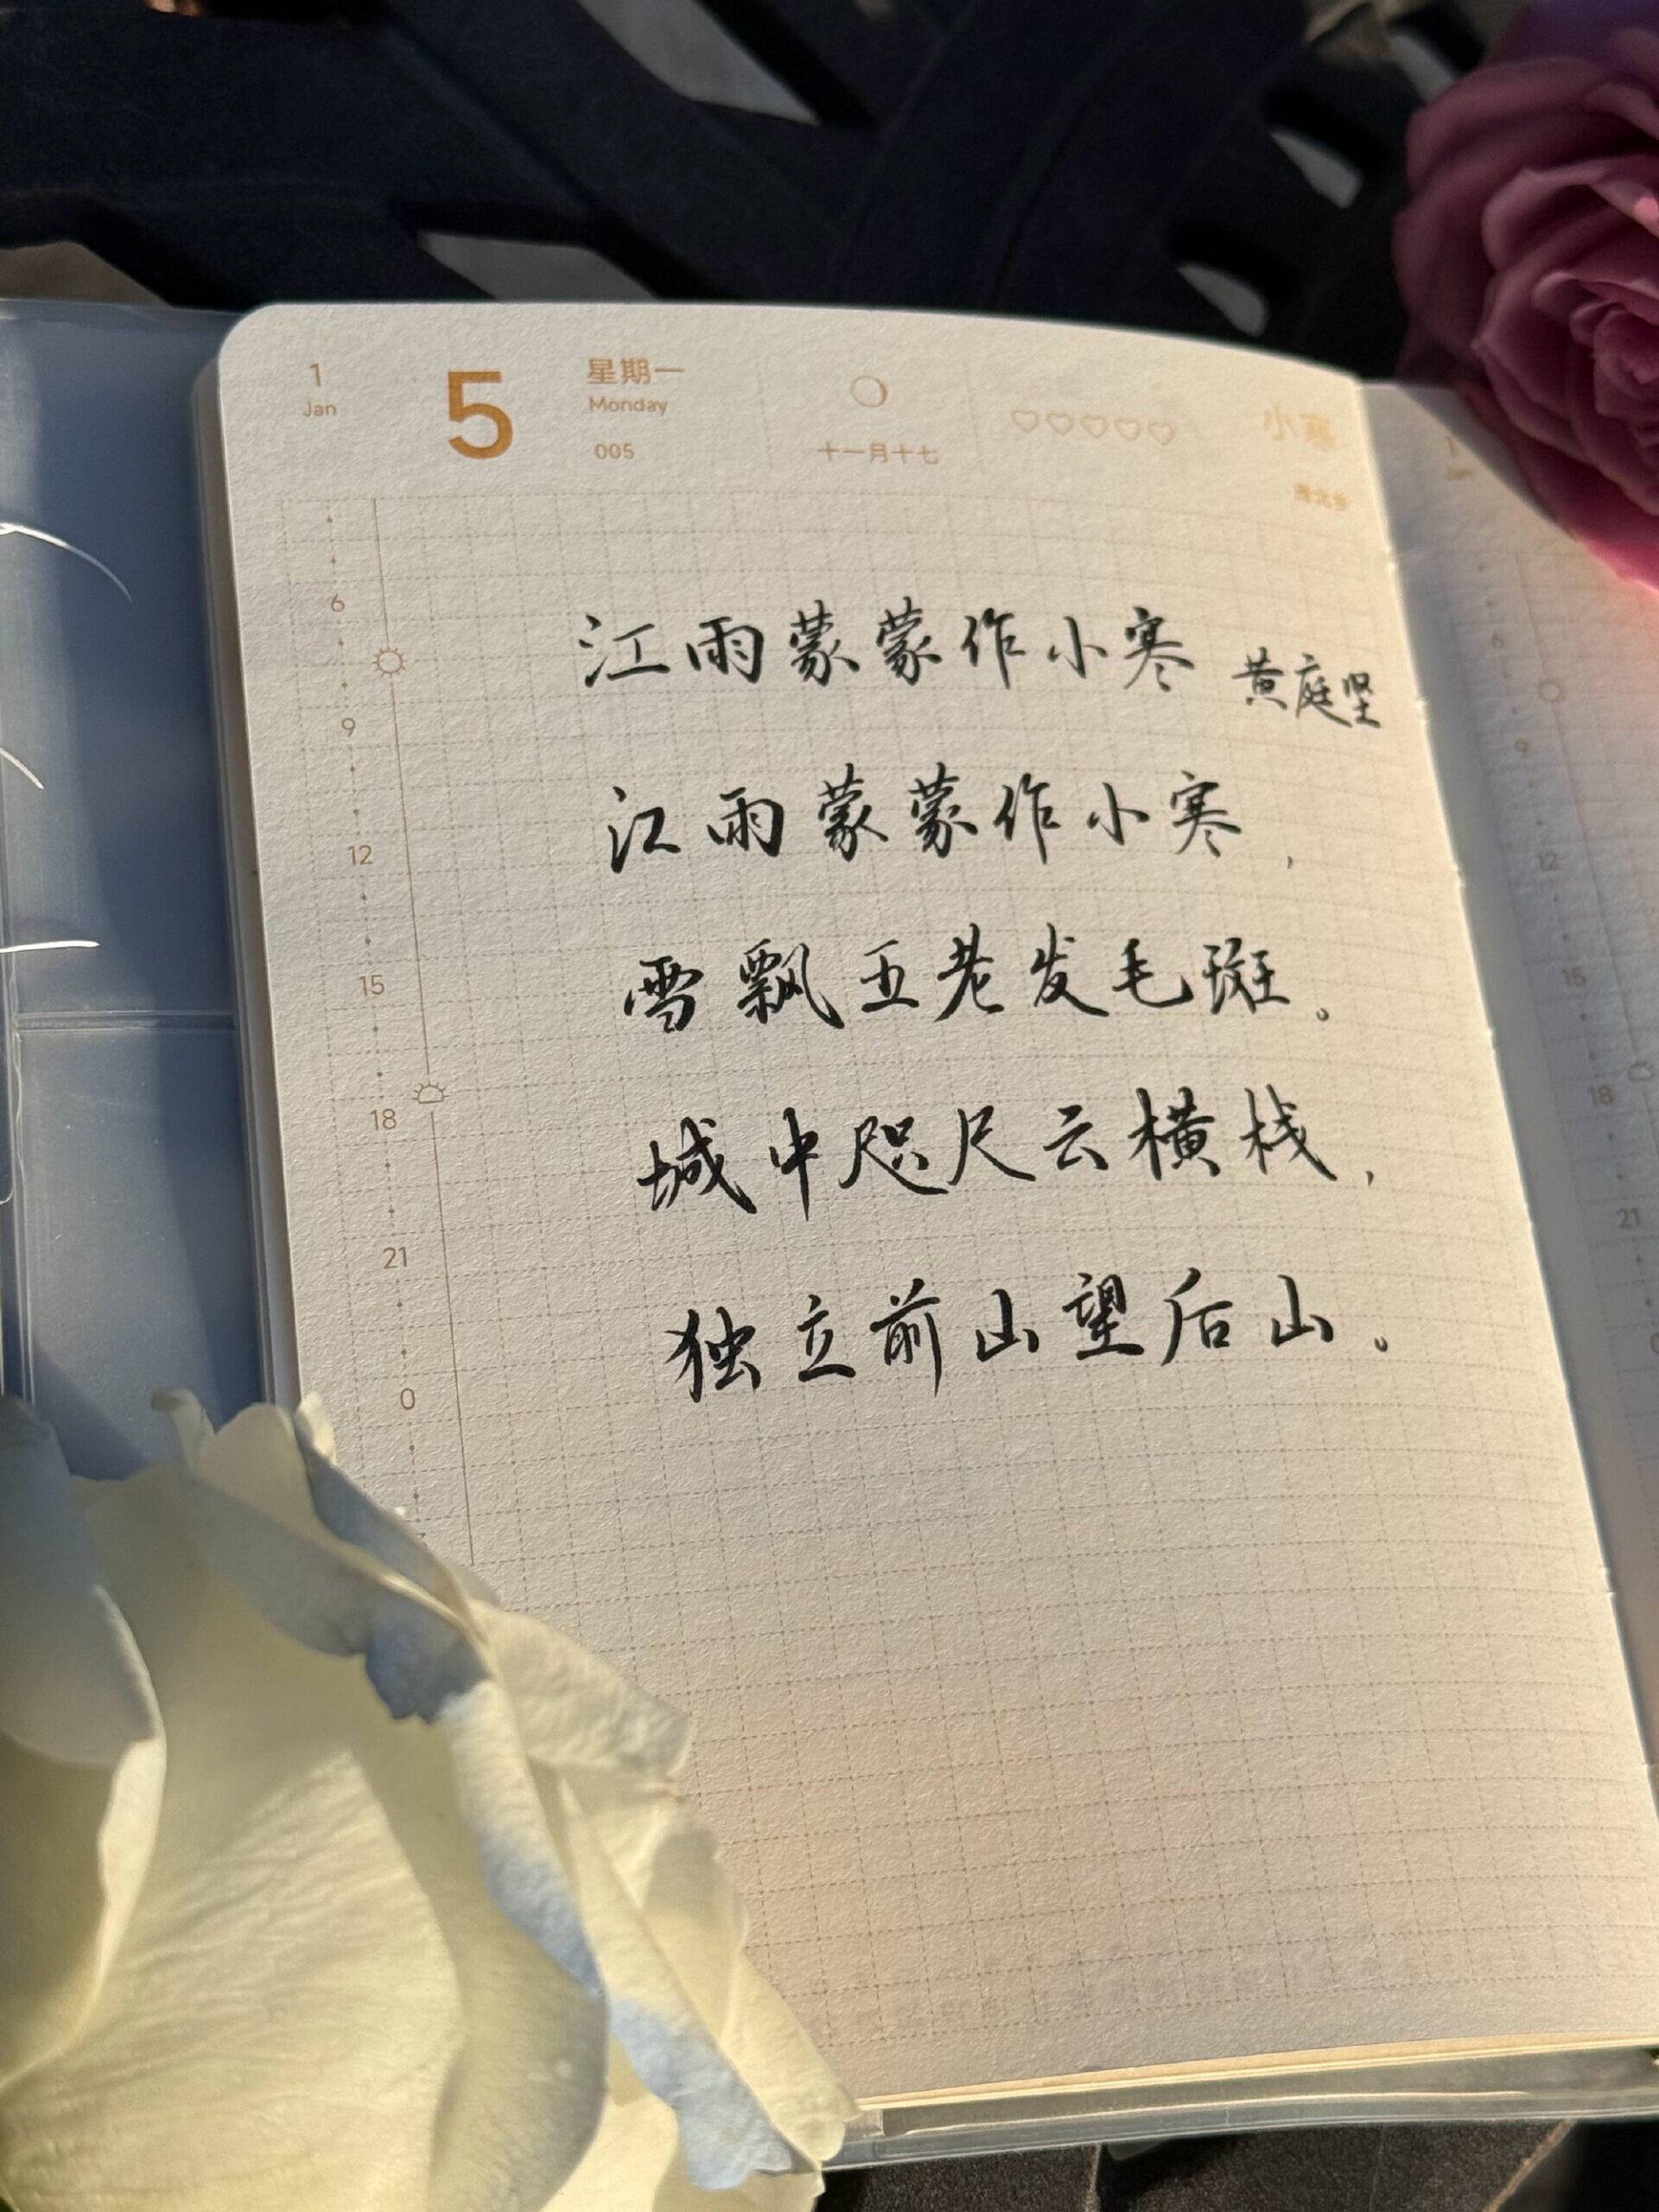 1 5 星期一 小寒
Jan Monday
005 十一月十七
6
江雨蒙蒙作小寒 黄庭坚
9
江雨蒙蒙作小寒，
12
15
雪飘五老发毛斑。
18
城中咫尺云横栈，
21
独立前山望后山。
0
6
9
12
15
18
21